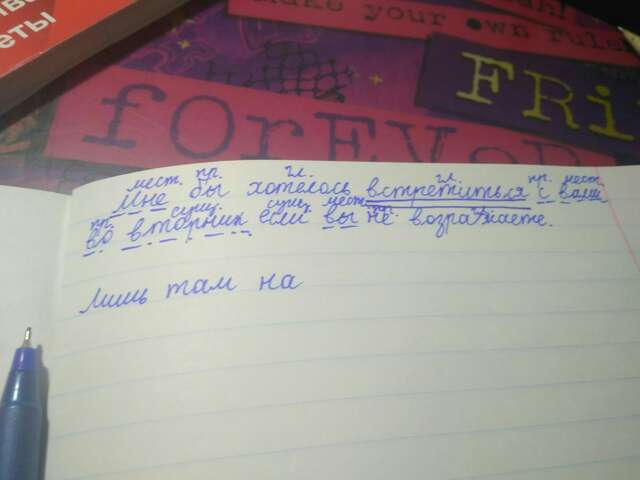 ва
еты
ah!
make your own rules
FRi
forEVER
мест. пр. гл. гл. пр. мест.
Мне бы хотелось встретиться с вами
пр. сущ. сущ. мест. пр.
во вторник если вы не возражаете.
Лишь там на